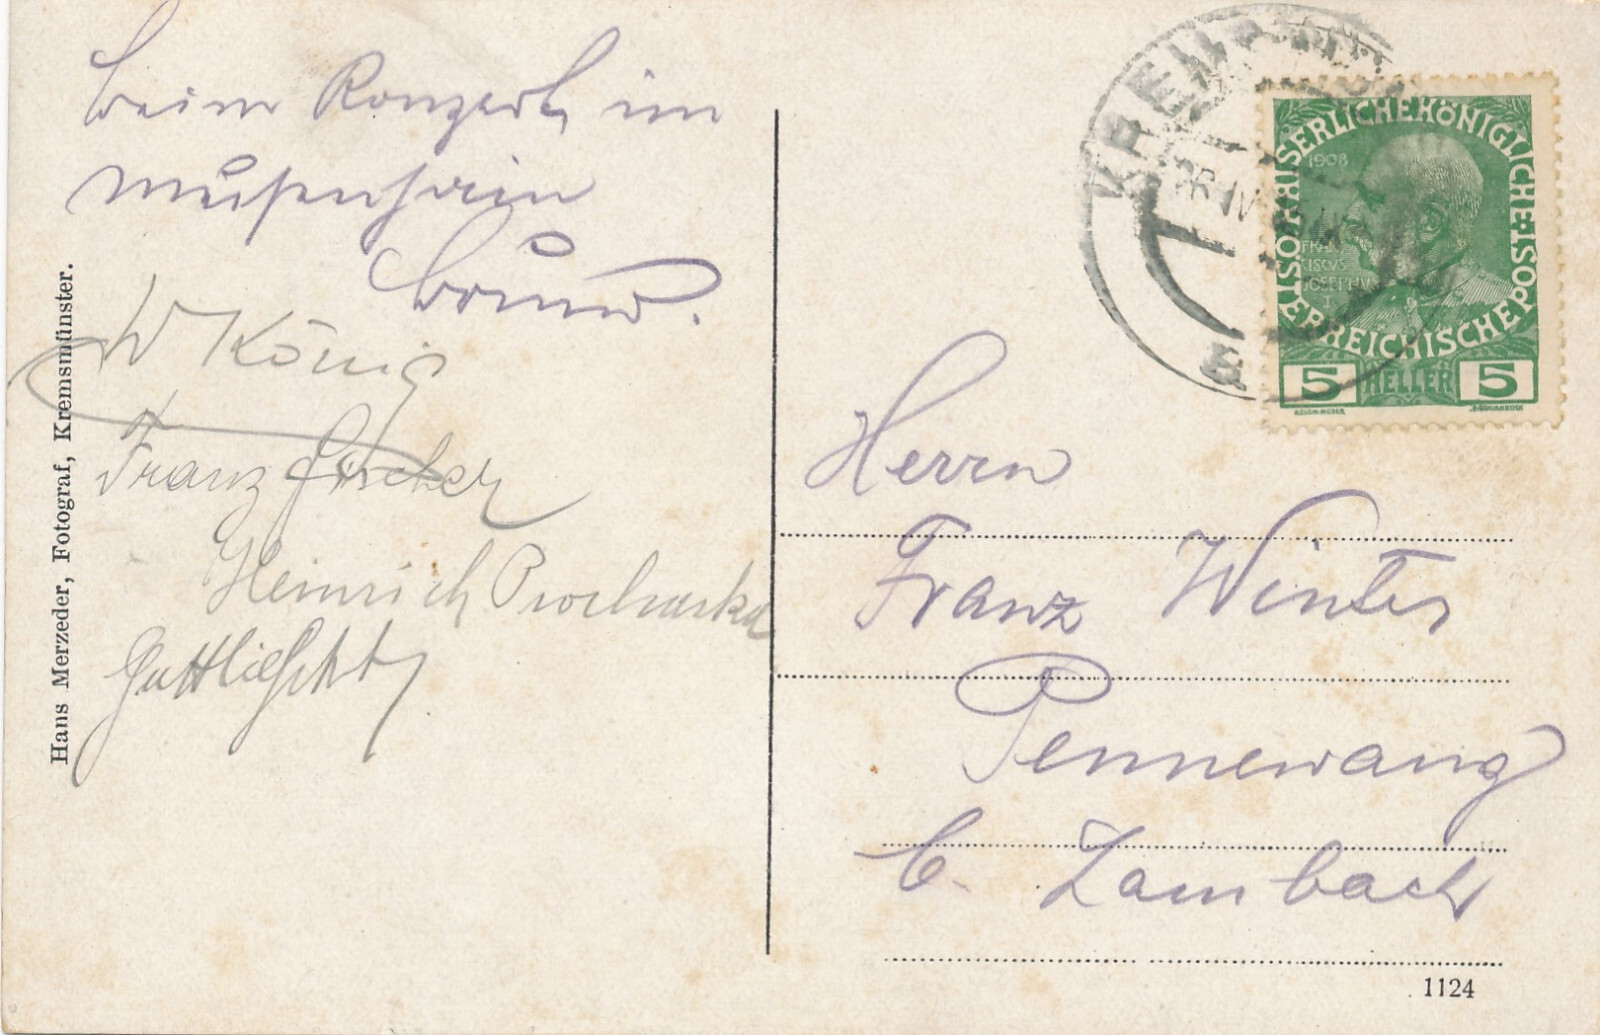 beim Konzert im
Musenhain
Bruno.
W König
Franz Fischer
Heinrich Prochaska
Hans Merzeder, Fotograf, Kremsmünster.
KAISERLICHE KÖNIGLICHE
ÖSTERREICHISCHE POST
1908
FRAN
CISCUS
JOSEPHUS
I
5 HELLER 5
Herrn
Franz Winter
Pennewang
b. Lambach
1124